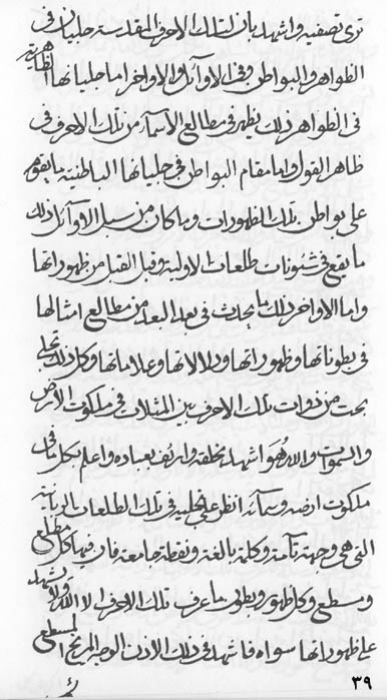 ترى تصفينه واشهد بان لتلك الاحرف المقدسة جليات فى
الظواهر والبواطن وفى الاوآئل والاواخر اما جلياتها الظاهرية
فى الظواهر ذلك يظهر فى مطالع الاسمآء من تلك الاحرف فى
ظاهر القول واما مقام البواطن فى جلياتها الباطنية ما يقوم
على بواطن تلك الظهورات وما كان من سبل الاوآئل ذلك
ما يقع فى شئونات طلعات الاولية وقبل القبل من ظهوراتها
واما الاواخر ذلك ما يحدث فى بعد البعد من مطالع امثالها
فى بطوناتها وظهوراتها ودلالاتها وعلاماتها وكل ذلك تجلى
بحت من ذوات تلك الاحرف بين المثلات فى ملكوت الارض
والسموات والله هو اشهد بخلقه وارئف بعباده واعلم بكل ما فى
ملكوت ارضه وسمآئه انظر على تجليه فى تلك الطلعات الربانية
التى هى وجهة تآمة وكلمة بالغة ونقطة جامعة فان فيها كل مطلع
ومسطع وكل ظهور وبطون ما عرف تلك الاحرف الا الله ولا يشهد
على ظهوراتها سواه فاشهد فى ذلك الاذن المسطع
٣٩